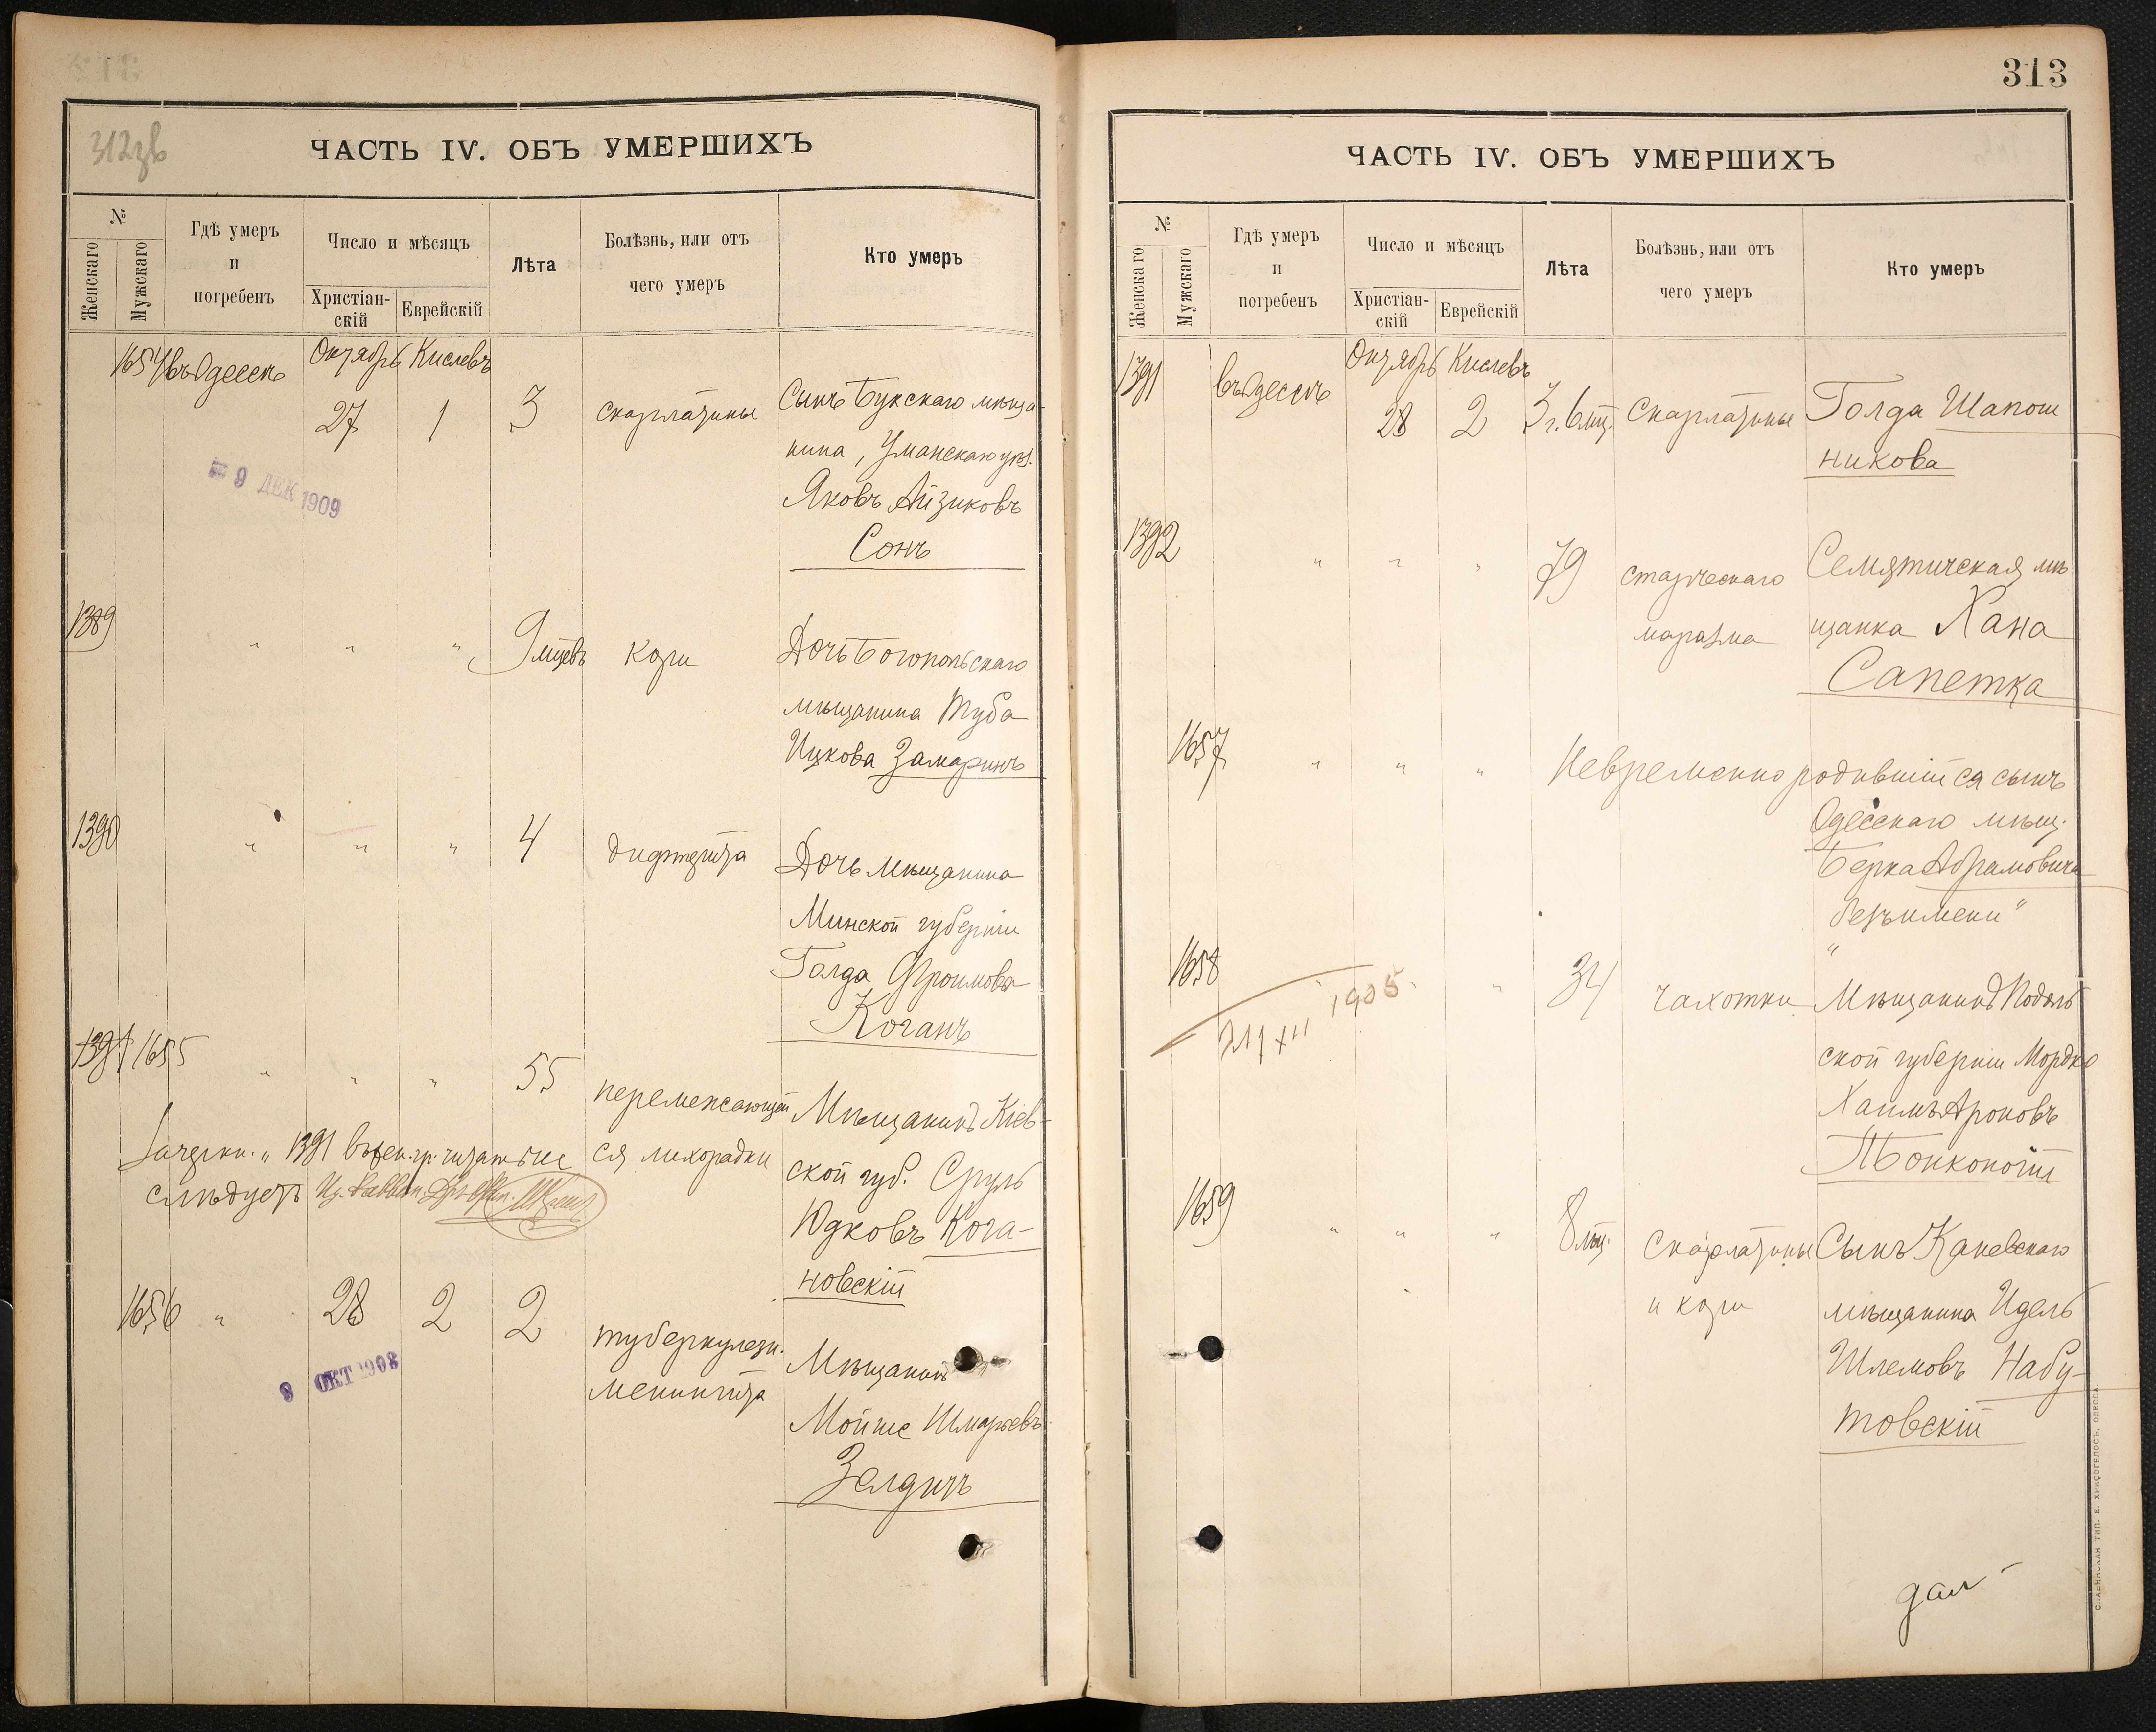 312зв
ЧАСТЬ IV. ОБЪ УМЕРШИХЪ
№
Женскаго
Мужскаго
Гдѣ умеръ
и
погребенъ
Число и мѣсяцъ
Христіан-
скій
Еврейскій
Лѣта
Болѣзнь, или отъ
чего умеръ
Кто умеръ
1654 въ Одессѣ Октябрь Кислевъ
27 1 3 скарлатины Сынъ Букскаго мѣща-
нина, Уманскаго уѣз.
Яковъ Айзиковъ
Сонъ
9 ДЕК 1909
1389 " " " 9 мцевъ кори Дочь Богопольскаго
мѣщанина Туба
Ицкова Замаринъ
1390 " " " 4 дифтерита Дочь мѣщанина
Минской губерніи
Голда Фроимова
Коганъ
1391 1655 " " " 55 перемежающей Мѣщанинъ Кіев-
ся лихорадки ской губ. Сруль
Юдковъ Кога-
новскій
Зачеркн. " 1391 въ жен. гр. читать не
слѣдуетъ
1656 " 28 2 2 туберкулезн. Мѣщанинъ
менингита Мойше Шмарьевъ
Зелдинъ
9 ОКТ 1908
313
ЧАСТЬ IV. ОБЪ УМЕРШИХЪ
№
Женскаго
Мужскаго
Гдѣ умеръ
и
погребенъ
Число и мѣсяцъ
Христіан-
скій
Еврейскій
Лѣта
Болѣзнь, или отъ
чего умеръ
Кто умеръ
1391 въ Одессѣ Октябрь Кислевъ
28 2 3 г. 6 мц. Скарлатины Голда Шапош
никова
1392 " " " 79 старческаго Семятичская мѣ
маразма щанка Хана
Сапетка
1657 " " " Невременно родившійся сынъ
Одесскаго мѣщ.
Берка Абрамовича
"безъ имени"
1658 " " " 34 чахотки Мѣщанинъ Подоль
ской губерніи Мордко
Хаимъ Ароновъ
21/XII 1905
1659 " " " 8 мц. Скарлатины Сынъ Каневскаго
и кори мѣщанина Идель
Шлемовъ Набу-
товскій
СЛАВЯНСКАЯ ТИП. Е. ХРИСОГЕЛОСЪ, ОДЕССА